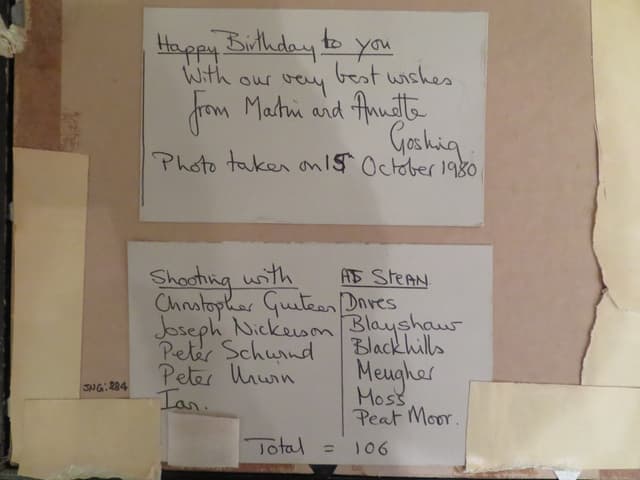 Happy Birthday to you
With our very best wishes
from Martin and Annette
Gosling
Photo taken on 15 October 1980
Shooting with
Christopher
Joseph Nickerson
Peter Schwind
Peter Unwin
Ian.
AT STEAN
Drives
Blayshaw
Blackhills
Meugher
Moss
Peat Moor.
JNG: 284
Total = 106